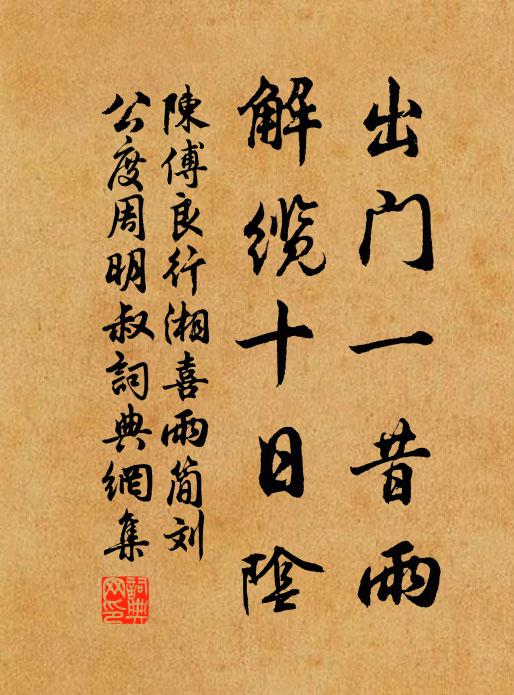 出门一昔雨
解缆十日陰
陳傅良行湘喜雨简刘
公度周明叔詞典網集
詞典
网印